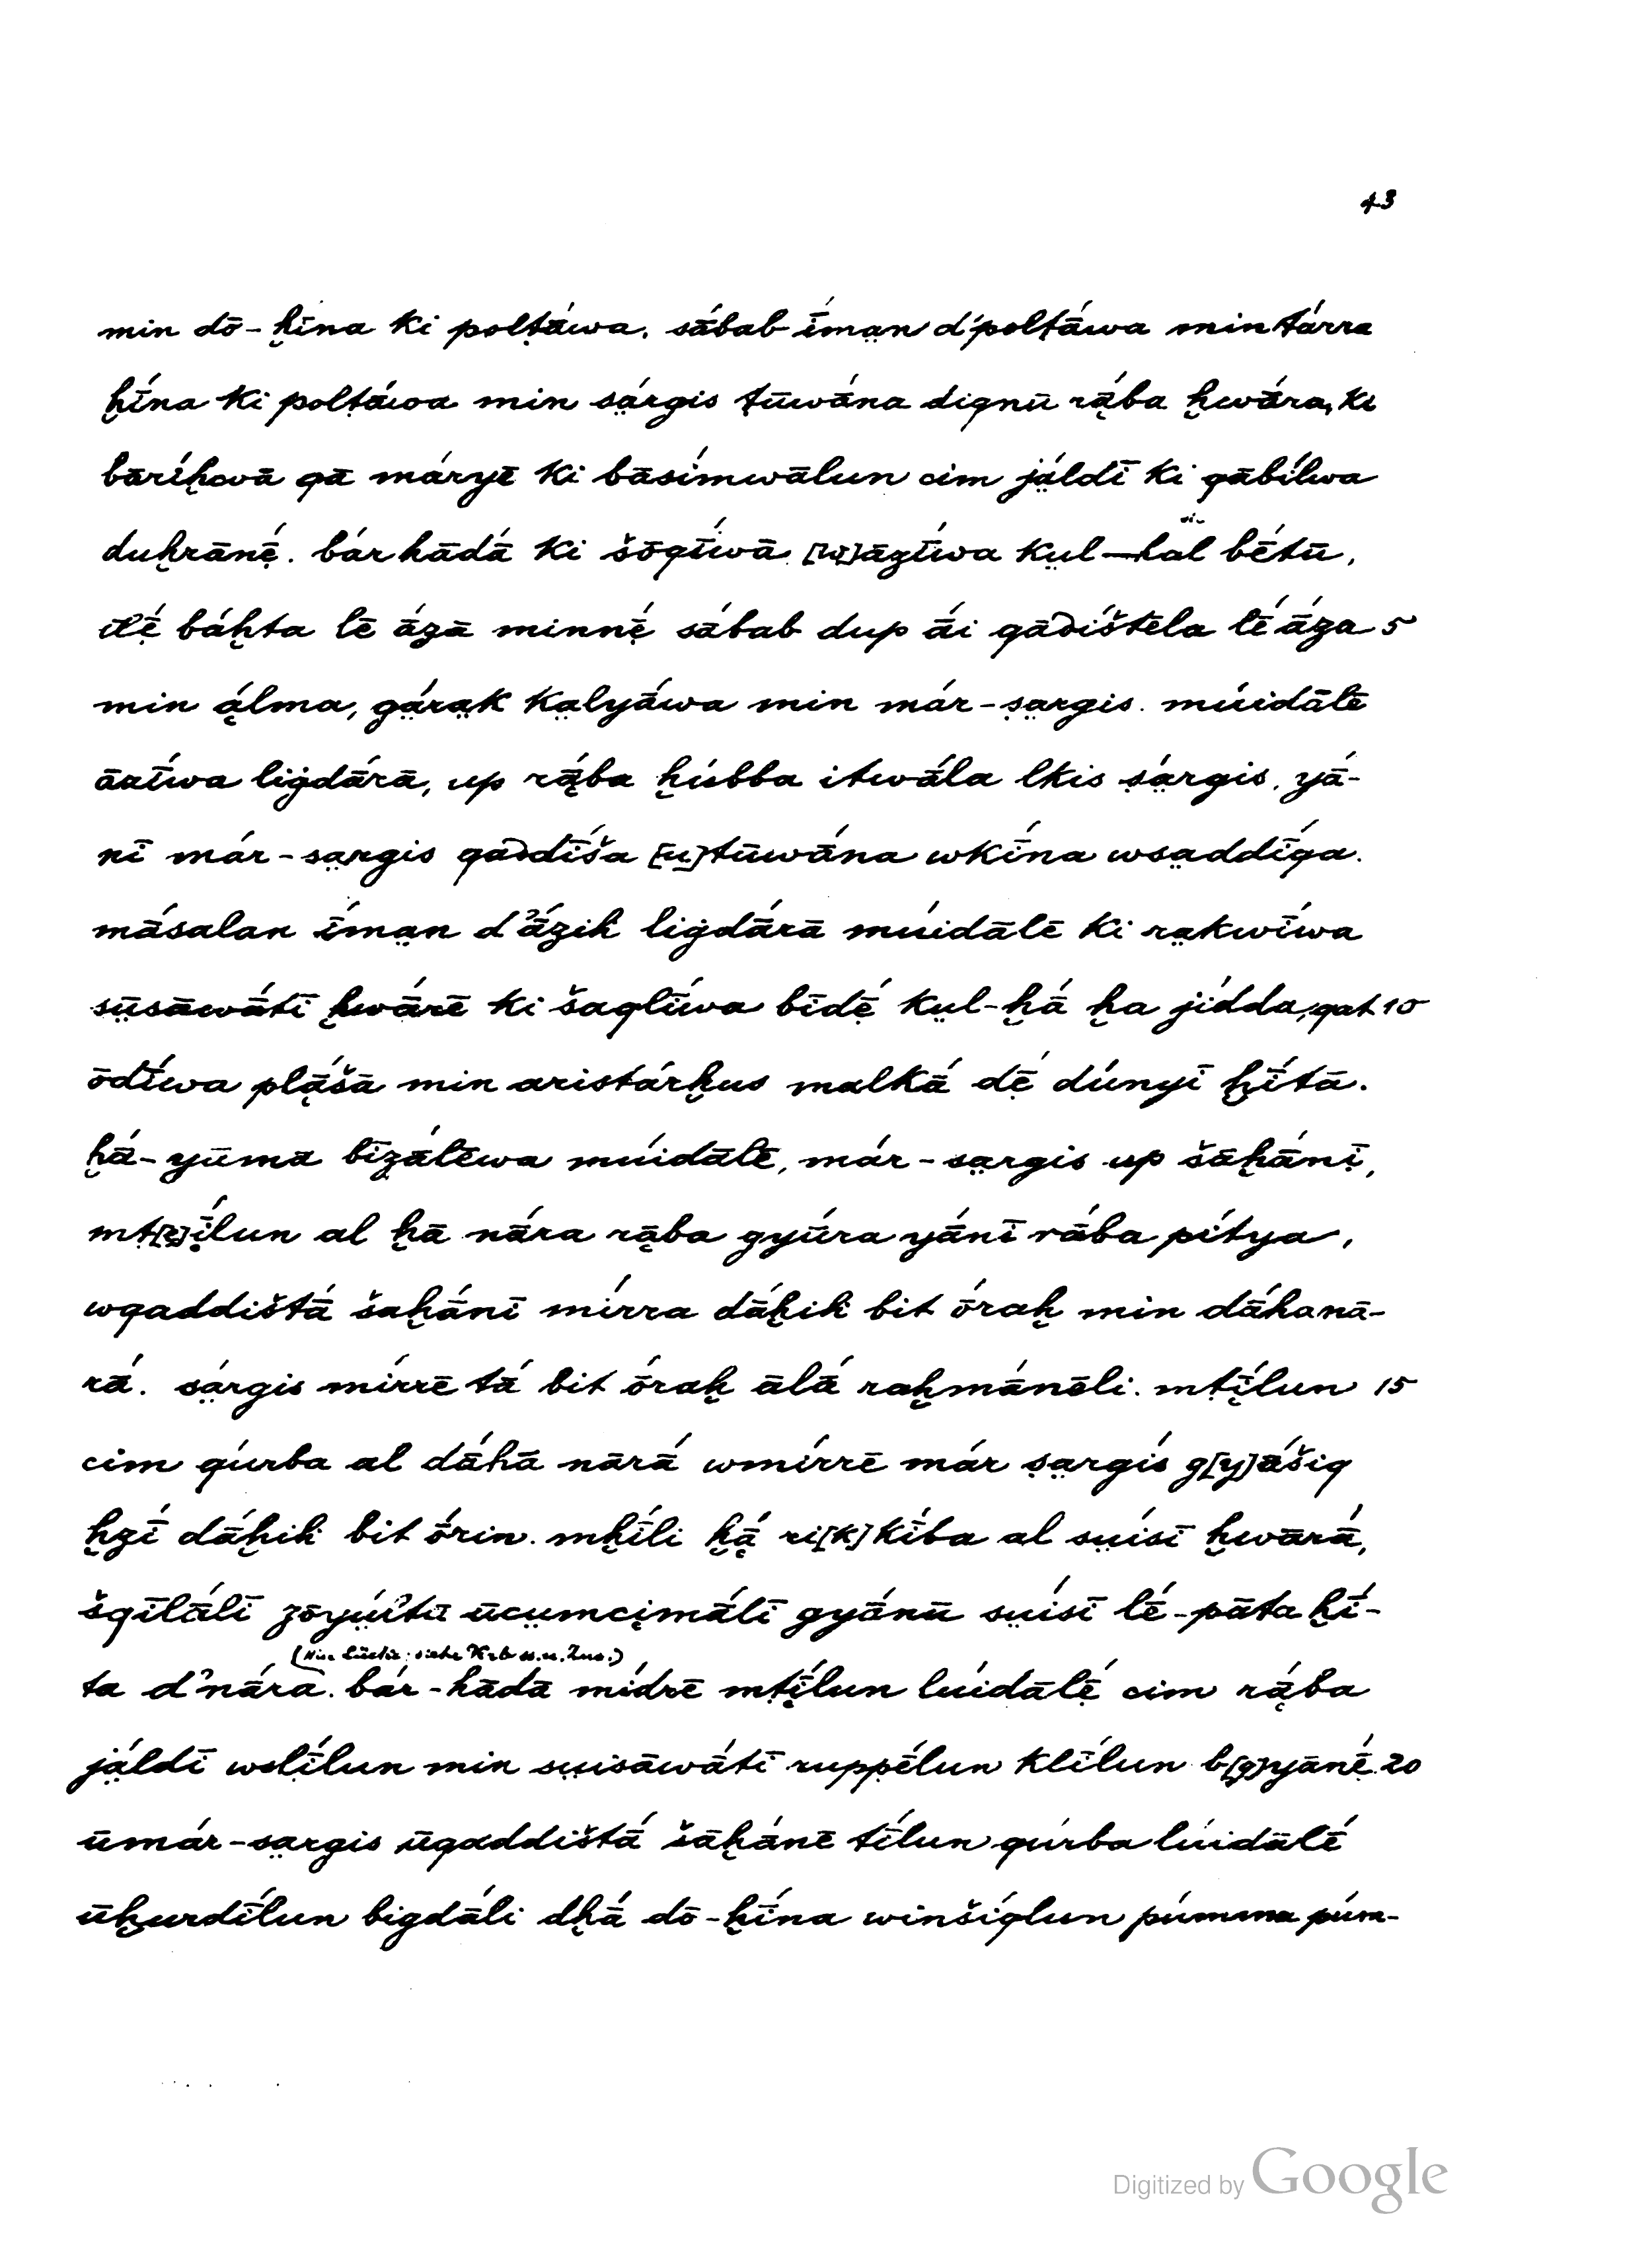 43
min dō-ḫīna ki polṭā́wa. sā́bab ī́ma̤n d'polṭā́wa min tárra
ḫī́na ki polṭā́wa min sá̤rgis ṭūwā́na diqnū rą̄́ba ḫwā́ra, ki
bārī́ḫwā qā máryē ki bāsímwālun cim já̤ldī ki qābílwa
duḫrānẹ̄́. bár hādā́ ki šōqī́wā [w]āzī́wa kṳl-hal bētū,
itlẹ̄́ báḫta lē ā́zā minnẹ̄́ sā́bab dup ā́i qādíštēla lē ā́za 5
min ą́lma, gá̤ra̤k ka̤lyā́wa min már-sa̤rgis. múidālē
āzī́wa liġdā́rā, up rą̄́ba ḫúbba itwā́la lkis sá̤rgis, yā́-
nī már-sa̤rgis qaddī́ša [u]tūwā́na wkī́na wsa̤ddī́qa.
mā́salan ī́ma̤n d'ā́zih liġdā́rā múidālē ki ra̤kwī́wa
sṳ̄sāwā́tī ḫwā́rē ki šaqlī́wa bīdẹ̄́ kṳl-ḫā́ ḫa jídda, qat 10
ōdī́wa plą̄́šā min aristárḫus malkā́ dẹ̄́ dúnyī ḫī́tā.
ḫā́-yūmā bīzā́lēwa múidālē, már-sa̤rgis up šāḫā́nī,
mṭ[y]į̄́lun al ḫā nā́ra rą̄ba gyū́ra yā́nī rā́ba pítya,
wqaddištā́ šaḫā́nī mírra dā́ḫih bit ṓraḫ min dā́hanā-
rā́. sá̤rgis mírrē tā́ bit ṓraḫ ālā́ raḫmā́nēli. mṭį̄́lun 15
cim qúrba al dā́hā nārā́ wmírrē már sa̤rgís g[y]ā́šiq
ḫzī́ dā́ḫih bit ṓrin. mḫī́li ḫą̄́ ri[k]kī́ba al sṳ́isī ḫwārā́,
šqīlā́lī zōyṳ́itū ūcṳmcįmā́lī gyā́nū sṳ́isī lḗ-pāta ḫī́-
(Hier Lücke; siehe
ta d'nā́ra. bár-hādā mídrē mṭį̄́lun lúidālẹ̄́ cim rą̄́ba
já̤ldī wṣlī́lun min sṳisāwā́tī ruppẹ̄́lun klī́lun b[g]yānẹ̄́. 20
ūmár-sa̤rgis ūqaddištā́ šāḫā́nē tī́lun qúrba lúidālḗ
ūḫurdī́lun bigdā́li dḫā́ dō-ḫī́na winšíqlun púmma púm-
Digitized by Google